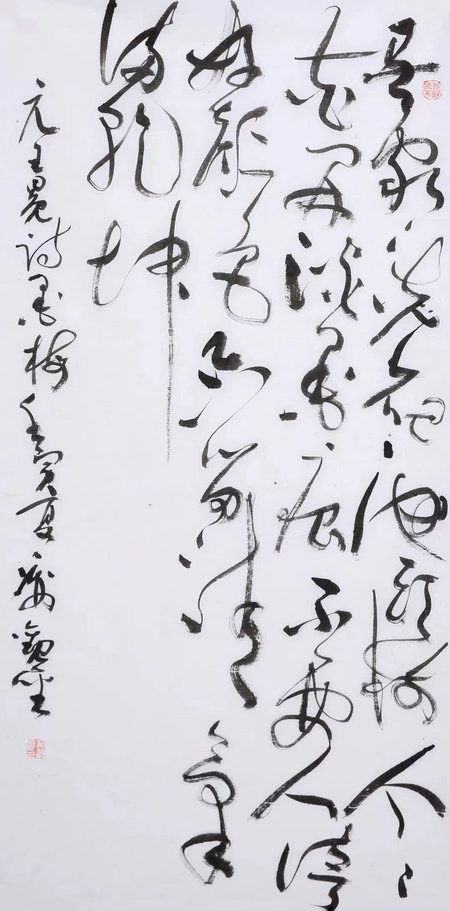 吾家洗硯池頭樹个々
花開淡墨痕不要人誇
好顏色只留清氣
滿乾坤
元王冕詩墨梅壬寅夏